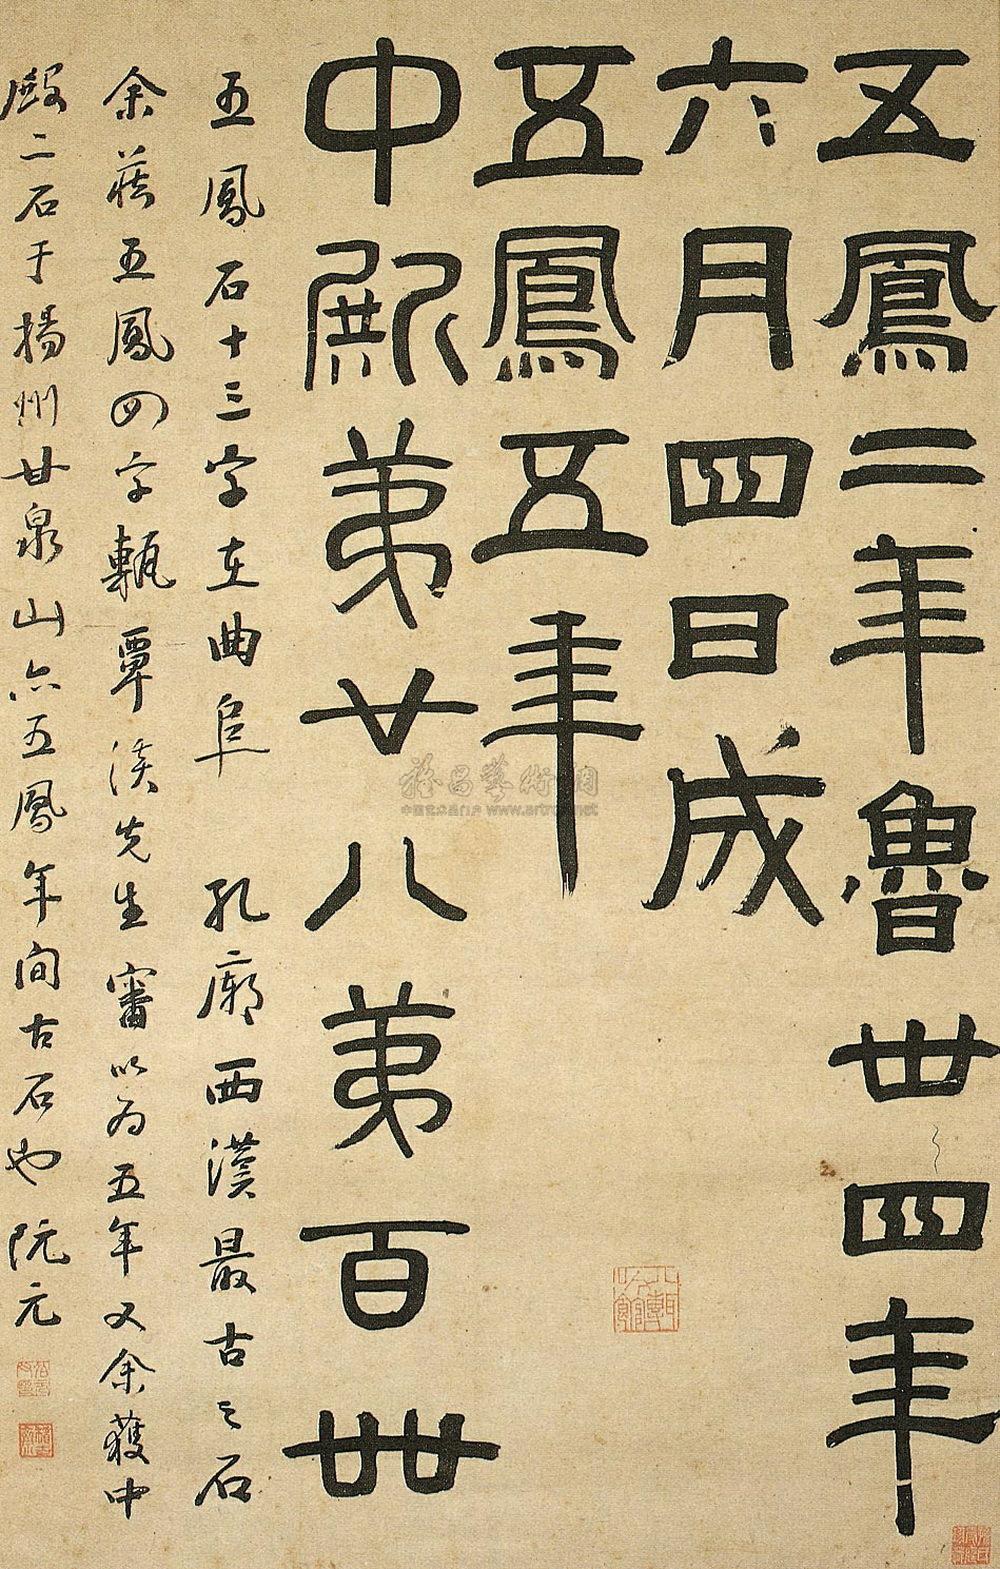 五鳳二年魯卅四年
六月四日成
五鳳五年
中殿第廿八第百卌
五鳳石十三字在曲阜孔廟西漢最古之石
余藏五鳳四字甎覃溪先生審以為五年又余獲中
殿二石于揚州甘泉山亦五鳳年間古石也阮元
www.artron.net